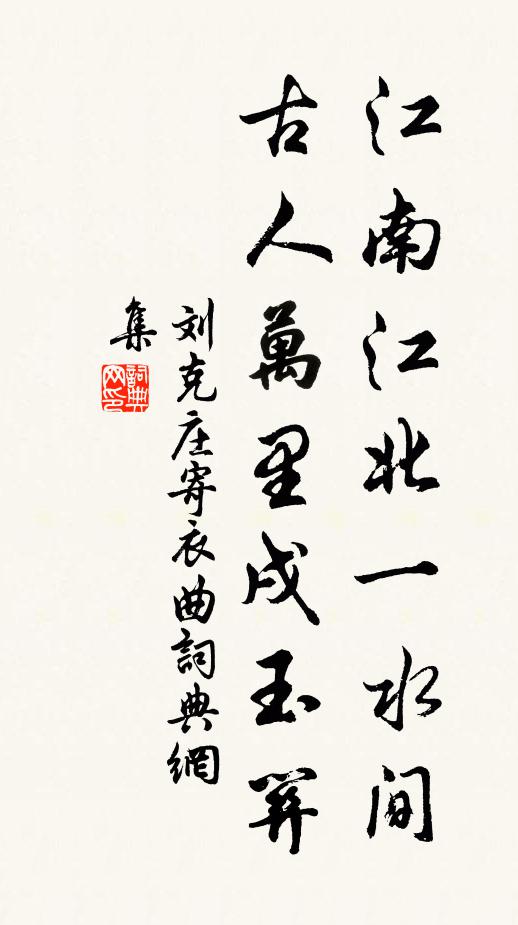 江南江北一水间
古人萬里戍玉関
刘克庄寄衣曲詞典網
集
詞典
网印